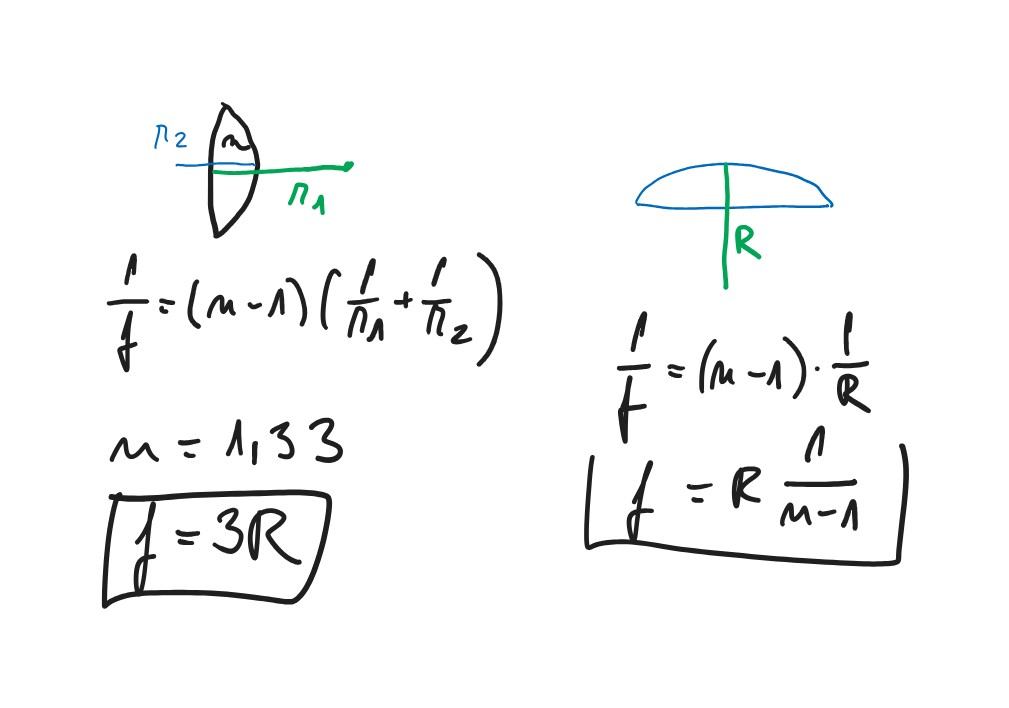 r2
n
r1
1/f = (n - 1) (1/r1 + 1/r2)
n = 1,33
f = 3R
R
1/f = (n - 1) · 1/R
f = R 1/(n-1)